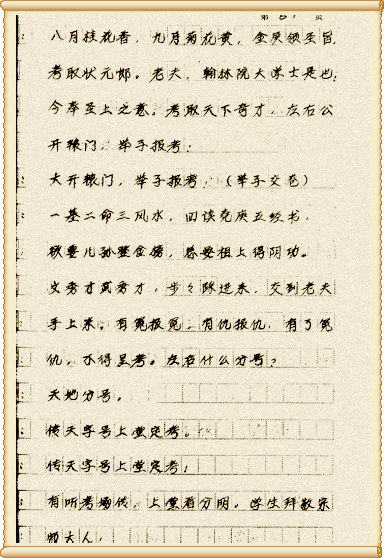 第 页
八月挂花香，九月菊花黄，金灵领圣旨，
考取状元郎。老夫，翰林院大学士是也；
今奉圣上之意。考取天下奇才。左右公
开辕门，举子报考；
大开辕门，举子报考，（举子交卷）
一墓二命三风水，四读 五经书，
儿孙登金榜，总要祖上得阴功。
文秀才武秀才，步々 进来，交到老夫
手上来。有冤报冤，有仇报仇，有了冤
仇，不得呈考。左右什么分号？
天地分号。
传天字号上堂定考。
传天字号上堂定考；
有听考场传，上堂看分明。学生拜敬宗
师大人；